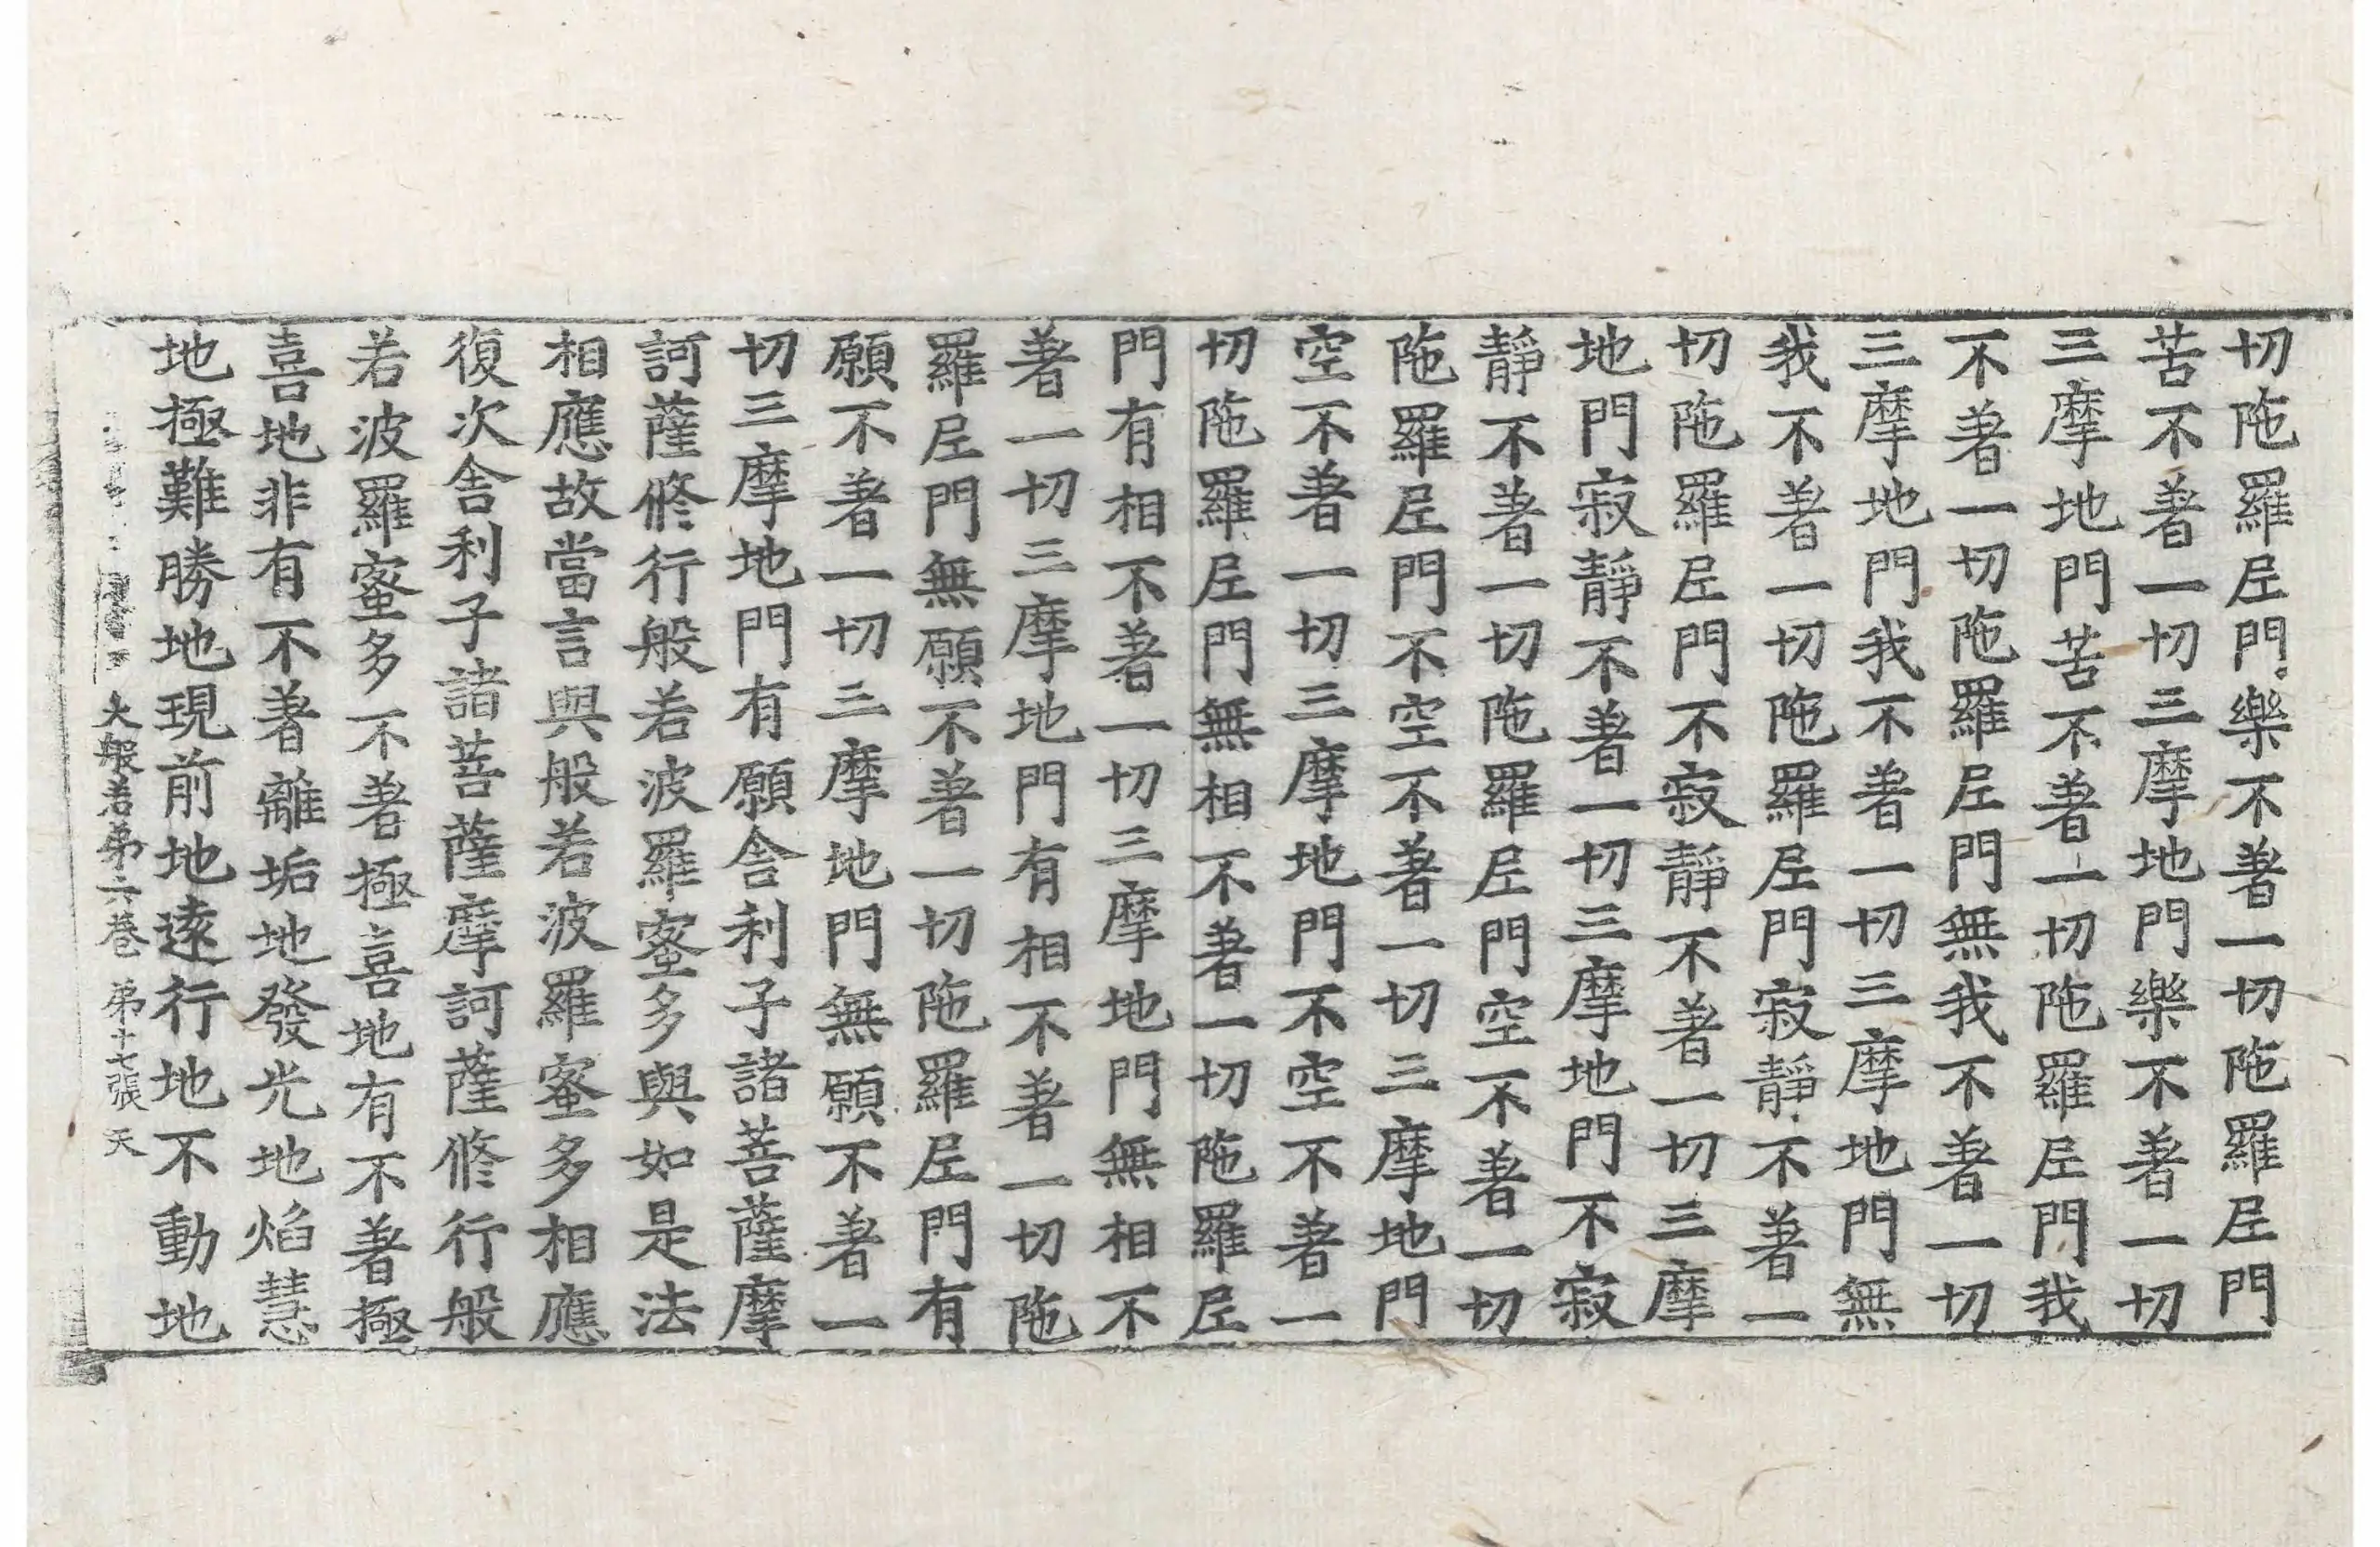 切陁羅尼門樂不著一切陁羅尼門
苦不著一切三摩地門樂不著一切
三摩地門苦不著一切陁羅尼門我
不著一切陁羅尼門無我不著一切
三摩地門我不著一切三摩地門無
我不著一切陁羅尼門寂靜不著一
切陁羅尼門不寂靜不著一切三摩
地門寂靜不著一切三摩地門不寂
靜不著一切陁羅尼門空不著一切
陁羅尼門不空不著一切三摩地門
空不著一切三摩地門不空不著一
切陁羅尼門無相不著一切陁羅尼
門有相不著一切三摩地門無相不
著一切三摩地門有相不著一切陁
羅尼門無願不著一切陁羅尼門有
願不著一切三摩地門無願不著一
切三摩地門有願舍利子諸菩薩摩
訶薩修行般若波羅蜜多與如是法
相應故當言與般若波羅蜜多相應
復次舍利子諸菩薩摩訶薩修行般
若波羅蜜多不著極喜地有不著極
喜地非有不著離垢地發光地焰慧
地極難勝地現前地遠行地不動地
大般若第六卷 第十七張 天